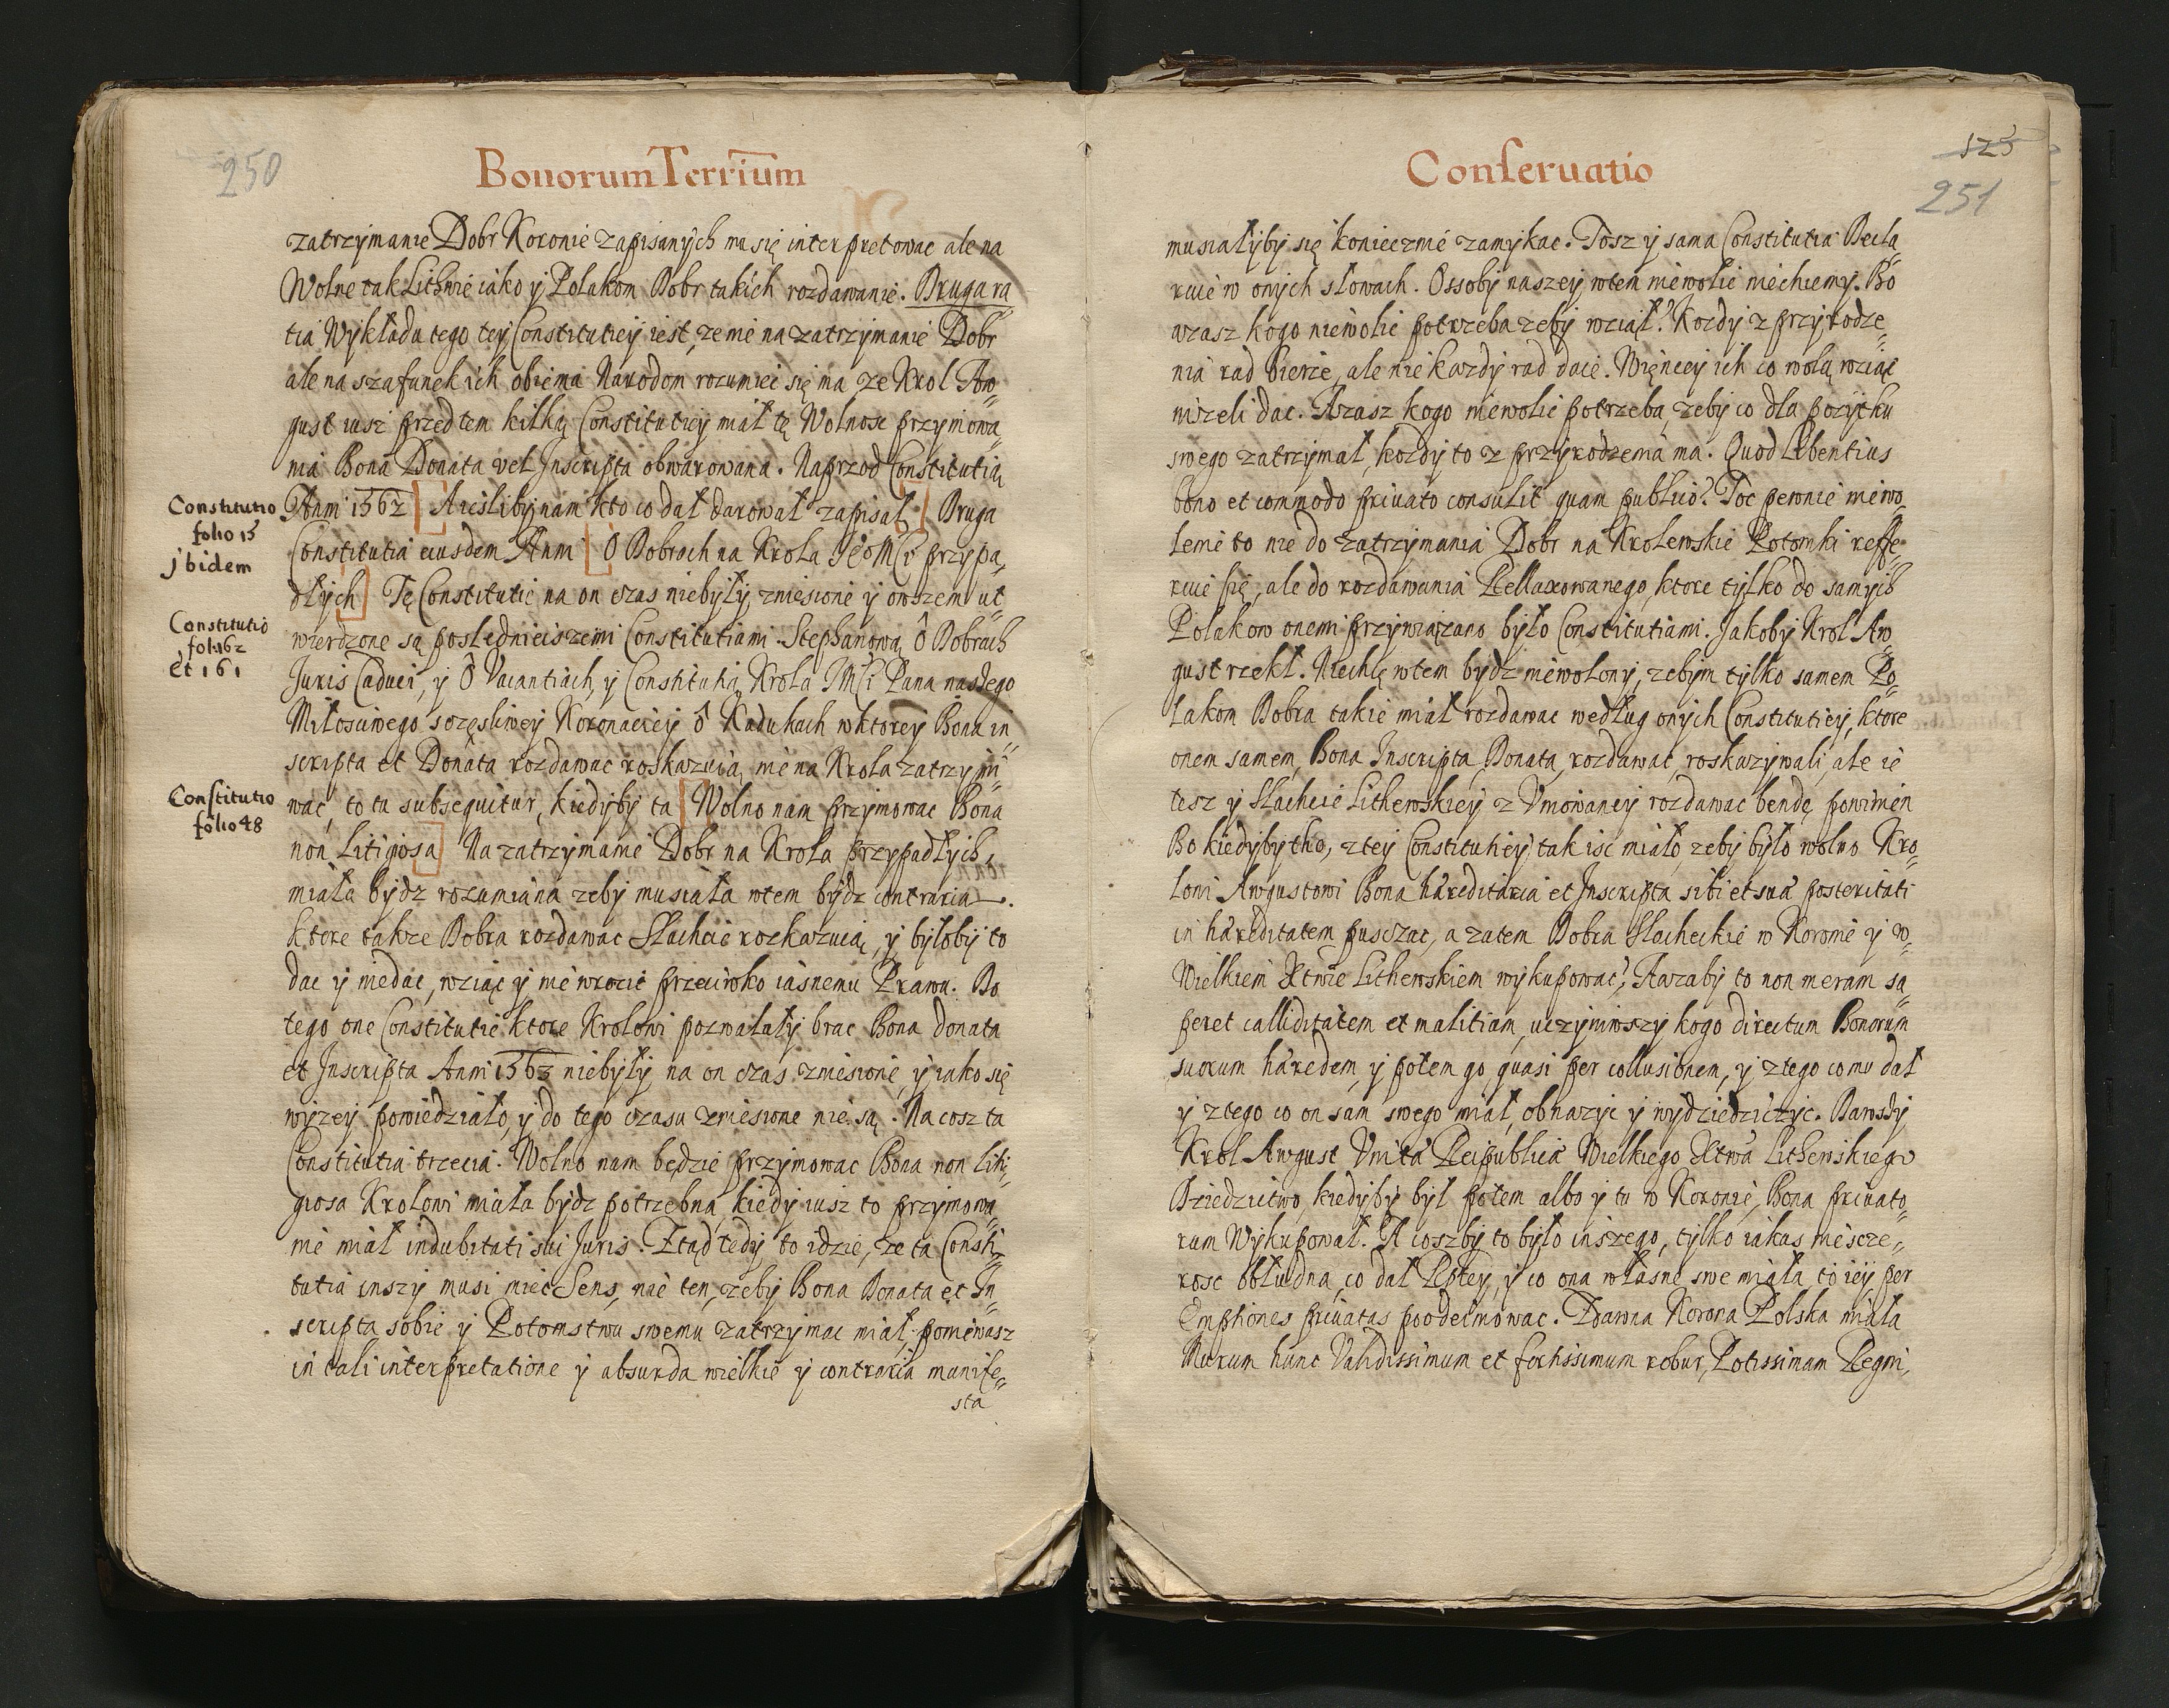 250
Bonorum Terrium
zatrzymanie Dobr Koronie zapisanych ma się interpretowac ale na
Wolne tak Lithwie iako y Polakom Dobr takich rozdawanie. Druga ra
tia Wykładu tego tey Constitutiey iest, ze nie na zatrzymanie Dobr
ale na szafunek ich obiema Narodom rozumiec się ma ze Krol Aw„
gust iusz przed tem kilką Constitutiey miał tę Wolnosc przyimowa„
nia Bona Donata vel Inscripta obwarowana. Naprzod Constitutią
Constitutio
folio 15
Anni 1562 [A iesliby nam kto co dał darował zapisał] Druga
jbidem
Constitutia eiusdem Anni [O Dobrach na Krola Jeo Mci przypa„
dłych] Tę Constitutie na on czas niebyły zniesione y owszem ut„
Constitutio
fol: 162
et 161
wierdzone są poslednieiszemi Constitutiami. Stephanową O Dobrach
Juris Caduci, y O Vacantiach, y Constitutią Krola JMci Pana naszego
Miłosciwego sczęsliwey Koronaciey o Kadukach w ktorey Bona in„
scripta et Donata rozdawac roskazuią, nie na Krola zatrzymi„
Constitutio
folio 48
wac, to ta subsequitur, kiedyby ta [Wolno nam przymowac Bona
non Litigiosa] Na zatrzymanie Dobr na Krola przypadłych,
miała bydz rozumiana zeby musiała wtem bydz contraria.
ktore takze Dobra rozdawac Slachcie rozkazuią, y byłoby to
dac y niedac, wziąc y nie wrocic przeciwko iasnemu Prawu. Bo
tego one Constitutie ktore Krolowi pozwalały brac Bona donata
et Inscripta Anni 1563 niebyły na on czas zniesione, y iako się
wyzey powiedziało, y do tego czasu zniesione nie są. Na cosz ta
Constitutia trzecia. Wolno nam będzie przymowac Bona non liti„
giosa Krolowi miała bydz potrzebna, kiedy iusz to przymowa„
nie miał indubitati sui Juris. Ztąd tedy to idzie, ze ta Consti„
tutia inszy musi miec Sens, nie ten, zeby Bona Donata et In„
scripta sobie y Potomstwu swemu zatrzymac miał, poniewasz
in tali interpretatione y absurda wielkie y contraria manife„
sta
Conseruatio
125
251
musiałyby się koniecznie zamykac. Tosz y sama Constitutia Decla„
ruie w onych słowach. Ossoby naszey wtem niewolic niechcemy. Bo
azasz kogo niewolic potrzeba zeby wział? Kozdy z przyrodze„
nia rad bierze, ale nie kazdy rad daie. Więncey ich co wolą wziąc
nizeli dac. Azasz kogo niewolic potrzeba, zeby co dla pozytku
swego zatrzymał, kozdy to z przyrodzenia ma. Quod Libentius
bono et commodo priuato consulit quam publico? Toc pewnie niewo„
lenie to nie do zatrzymania Dobr na Krolewskie Potomki reffe„
ruie się, ale do rozdawania Rellaxowanego, ktore tylko do samych
Polakow onemi przywiązano było Constitutiami. Jakoby Krol Aw„
gust rzekł. Niechcę wtem bydz niewolony, zebym tylko samem Po„
lakom Dobra takie miał rozdawac według onych Constitutiey, ktore
onem samem, Bona Inscripta Donata, rozdawac, roskazywali, ale ie
tesz y Slachcie Lithewskiey z Vmowaney rozdawac bendę powinien
Bo kiedyby tho, ztey Constitutiey tak isc miało, zeby było wolno Kro„
lowi Awgustowi Bona hæreditaria et Inscripta sibi et suæ posteritati
in hæreditatem pusczac, a zatem Dobra Slacheckie w Koronie y w„
Wielkiem Xtwie Lithewskiem wykupowac? Aazaby to non meram sa„
peret calliditatem et malitiam, uczyniwszy kogo directum Bonorum
suorum hæredem, y potem go quasi per collusionem, y ztego co mu dał
y ztego co on sam swego miał, obnazyc y wydziedziczyc. Darowszy
Krol Awgust Vnitæ Reipublicæ Wielkiego Xtwa Lithewskiego
Dziedzictwo, kiedyby był potem albo y tu w Koronie, Bona priuato„
rum Wykupował. A coszby to było inszego, tylko iakas niescze„
rosc obłudna, co dał Rptey, y co ona własne swe miała, to iey per
Emptiones priuatas poodeimowac. Zdawna Korona Polska miała
Murum hunc Validissimum et fortissimum robur, Potissimam Regni,